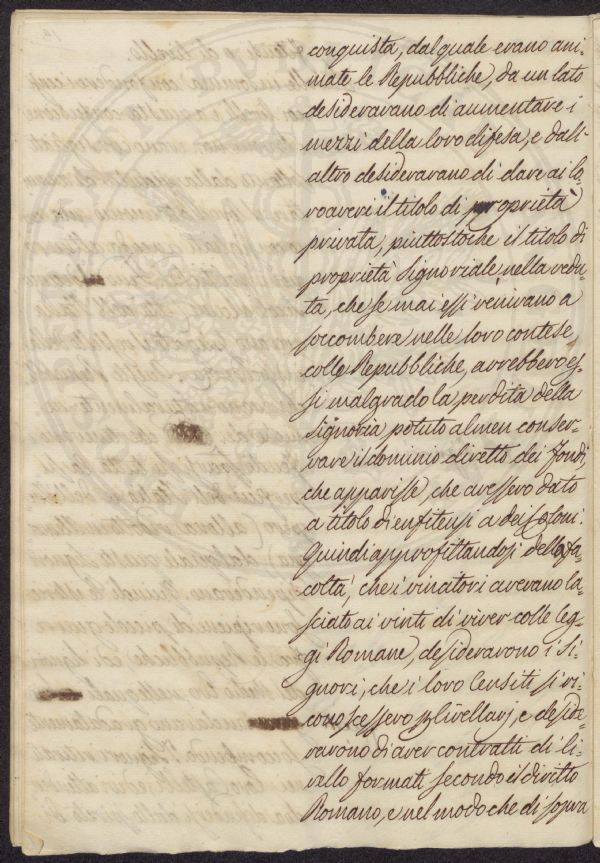 conquista, dal quale erano ani-
mate le Repubbliche, da un lato
desideravano di aumentare i
mezzi della loro difesa, e dall'
altro desideravano di dare ai lo-
ro averi il titolo di proprietà
privata, piuttostoche il titolo di
proprietà Signoriale nella vedu-
ta, che se mai essi venivano a
soccombere nelle loro contese
colle Repubbliche, avrebbero es-
si malgrado la perdita della
Signoria potuto almen conser-
vare il dominio diretto dei fondi,
che apparisse, che avessero dato
a titolo di enfiteusi a dei Coloni.
Quindi approfittandosi della fa-
coltà, che i vincitori avevano la-
sciato ai vinti di viver colle leg-
gi Romane, desideravono i Si-
gnori, che i loro Censiti si ri-
conoscessero p livellarj, e deside-
ravono di aver contratti di li-
vello formati secondo il diritto
Romano, e nel modo che di sopra